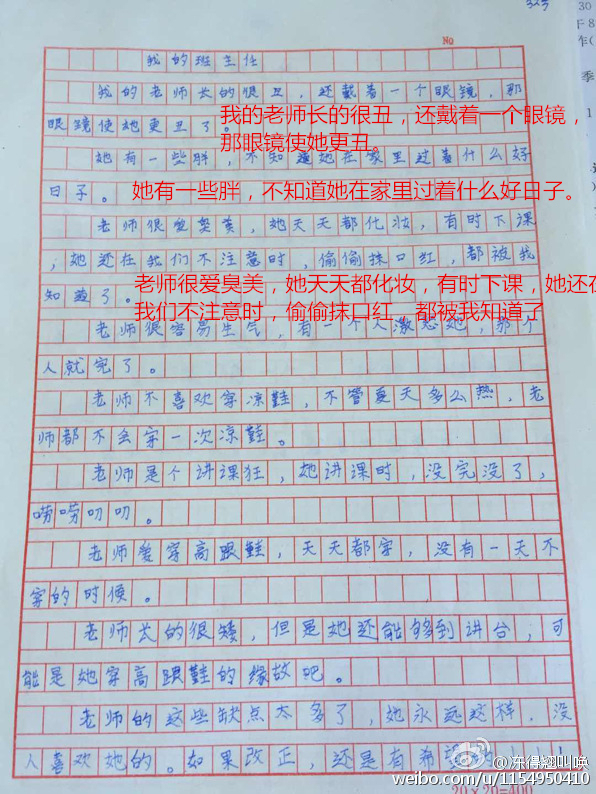 No
我的班主任
我的老师长的很丑，还戴着一个眼镜，那
眼镜使她更丑了。
我的老师长的很丑，还戴着一个眼镜，
那眼镜使她更丑。
她有一些胖，不知道她在家里过着什么好
日子。
她有一些胖，不知道她在家里过着什么好日子。
老师很爱臭美，她天天都化妆，有时下课
，她还在我们不注意时，偷偷抹口红，都被我
知道了。
老师很爱臭美，她天天都化妆，有时下课，她还在
我们不注意时，偷偷抹口红，都被我知道了
老师很容易生气，有一个人激怒她，那个
人就完了。
老师不喜欢穿凉鞋，不管夏天多么热，老
师都不会穿一次凉鞋。
老师是个讲课狂，她讲课时，没完没了，
唠唠叨叨。
老师爱穿高跟鞋，天天都穿，没有一天不
穿的时候。
老师长的很矮，但是她还能够到讲台，可
能是她穿高跟鞋的缘故吧。
老师的这些缺点太多了，她永远这样，没
人喜欢她的。如果改正，还是有希
@冻得翘叫唤
weibo.com/u/1154950410
20×20=400
30
季